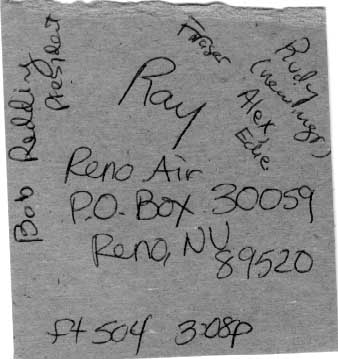 Bob Redding
President
Fraser
Rudy
(Hemmings)
Alex
Edie
Ray
Reno Air
P.O. Box 30059
Reno, NV
89520
flt 504 3:08p